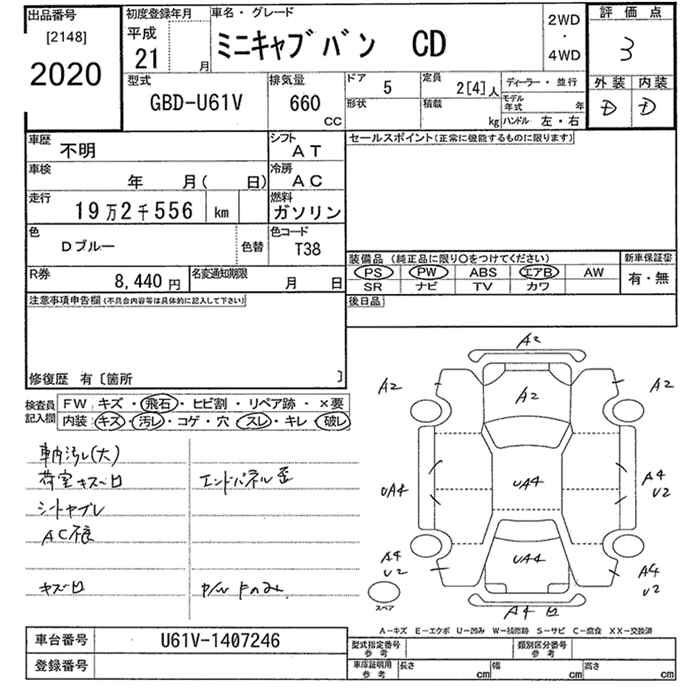 出品番号
[2148]
2020
初度登録年月
平成
21
月
車名・グレード
ミニキャブバン CD
2WD
・
4WD
評価点
3
外装 内装
D D
型式
GBD-U61V
排気量
660
CC
ドア
5
形状
定員
2[4]人
積載
kg
ディーラー・並行
モデル
年式
年
ハンドル 左・右
車歴
不明
シフト
AT
セールスポイント(正常に機能するものに限ります)
車検
年 月( 日)
冷房
AC
走行
19万2千556 km
燃料
ガソリン
色
Dブルー
色替
色コード
T38
装備品 (純正品に限り○をつけてください)
新車保証書
PS PW ABS エアB AW
有・無
SR ナビ TV カワ
R券
8,440 円
名変通知期限
月 日
後日品
注意事項申告欄(不具合内容等は具体的に記入して下さい)
修復歴 有〔箇所 〕
検査員
記入欄
FW: キズ・飛石・ヒビ割・リペア跡・×要
内装: キズ・汚レ・コゲ・穴・スレ・キレ・破レ
車内汚レ(大)
荷室キズ凹
エンドパネル歪
シートヤブレ
AC不良
キズ凹
P/W Fのみ
A2
A2
A2
A2
UA4
UA4
A4
U2
A4
U2
UA4
A4
U2
A4凹
スペア
A-キズ E-エクボ U-凹み W-補修跡 S-サビ C-腐食 XX-交換済
車台番号
U61V-1407246
登録番号
型式指定番号
参考
類別区分番号
参考
車庫証明用
参考
長さ
cm
幅
cm
高さ
cm